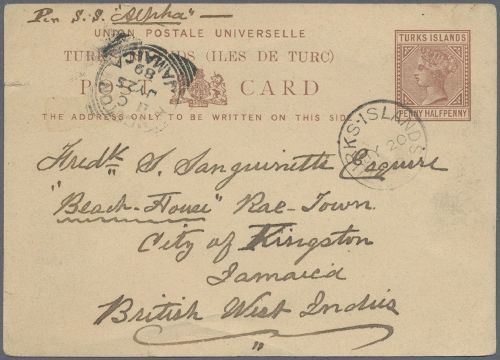 Per S.S. "Alpha" —
UNION POSTALE UNIVERSELLE
TURKS ISLANDS (ILES DE TURC)
POST CARD
THE ADDRESS ONLY TO BE WRITTEN ON THIS SIDE
TURKS ISLANDS
PENNY HALFPENNY
JAMAICA
89
TURKS-ISLANDS
20
Fredk S. Sanguinette Esquire
"Beach-House" Rae-Town.
City of Kingston
Jamaica
British West Indies
"